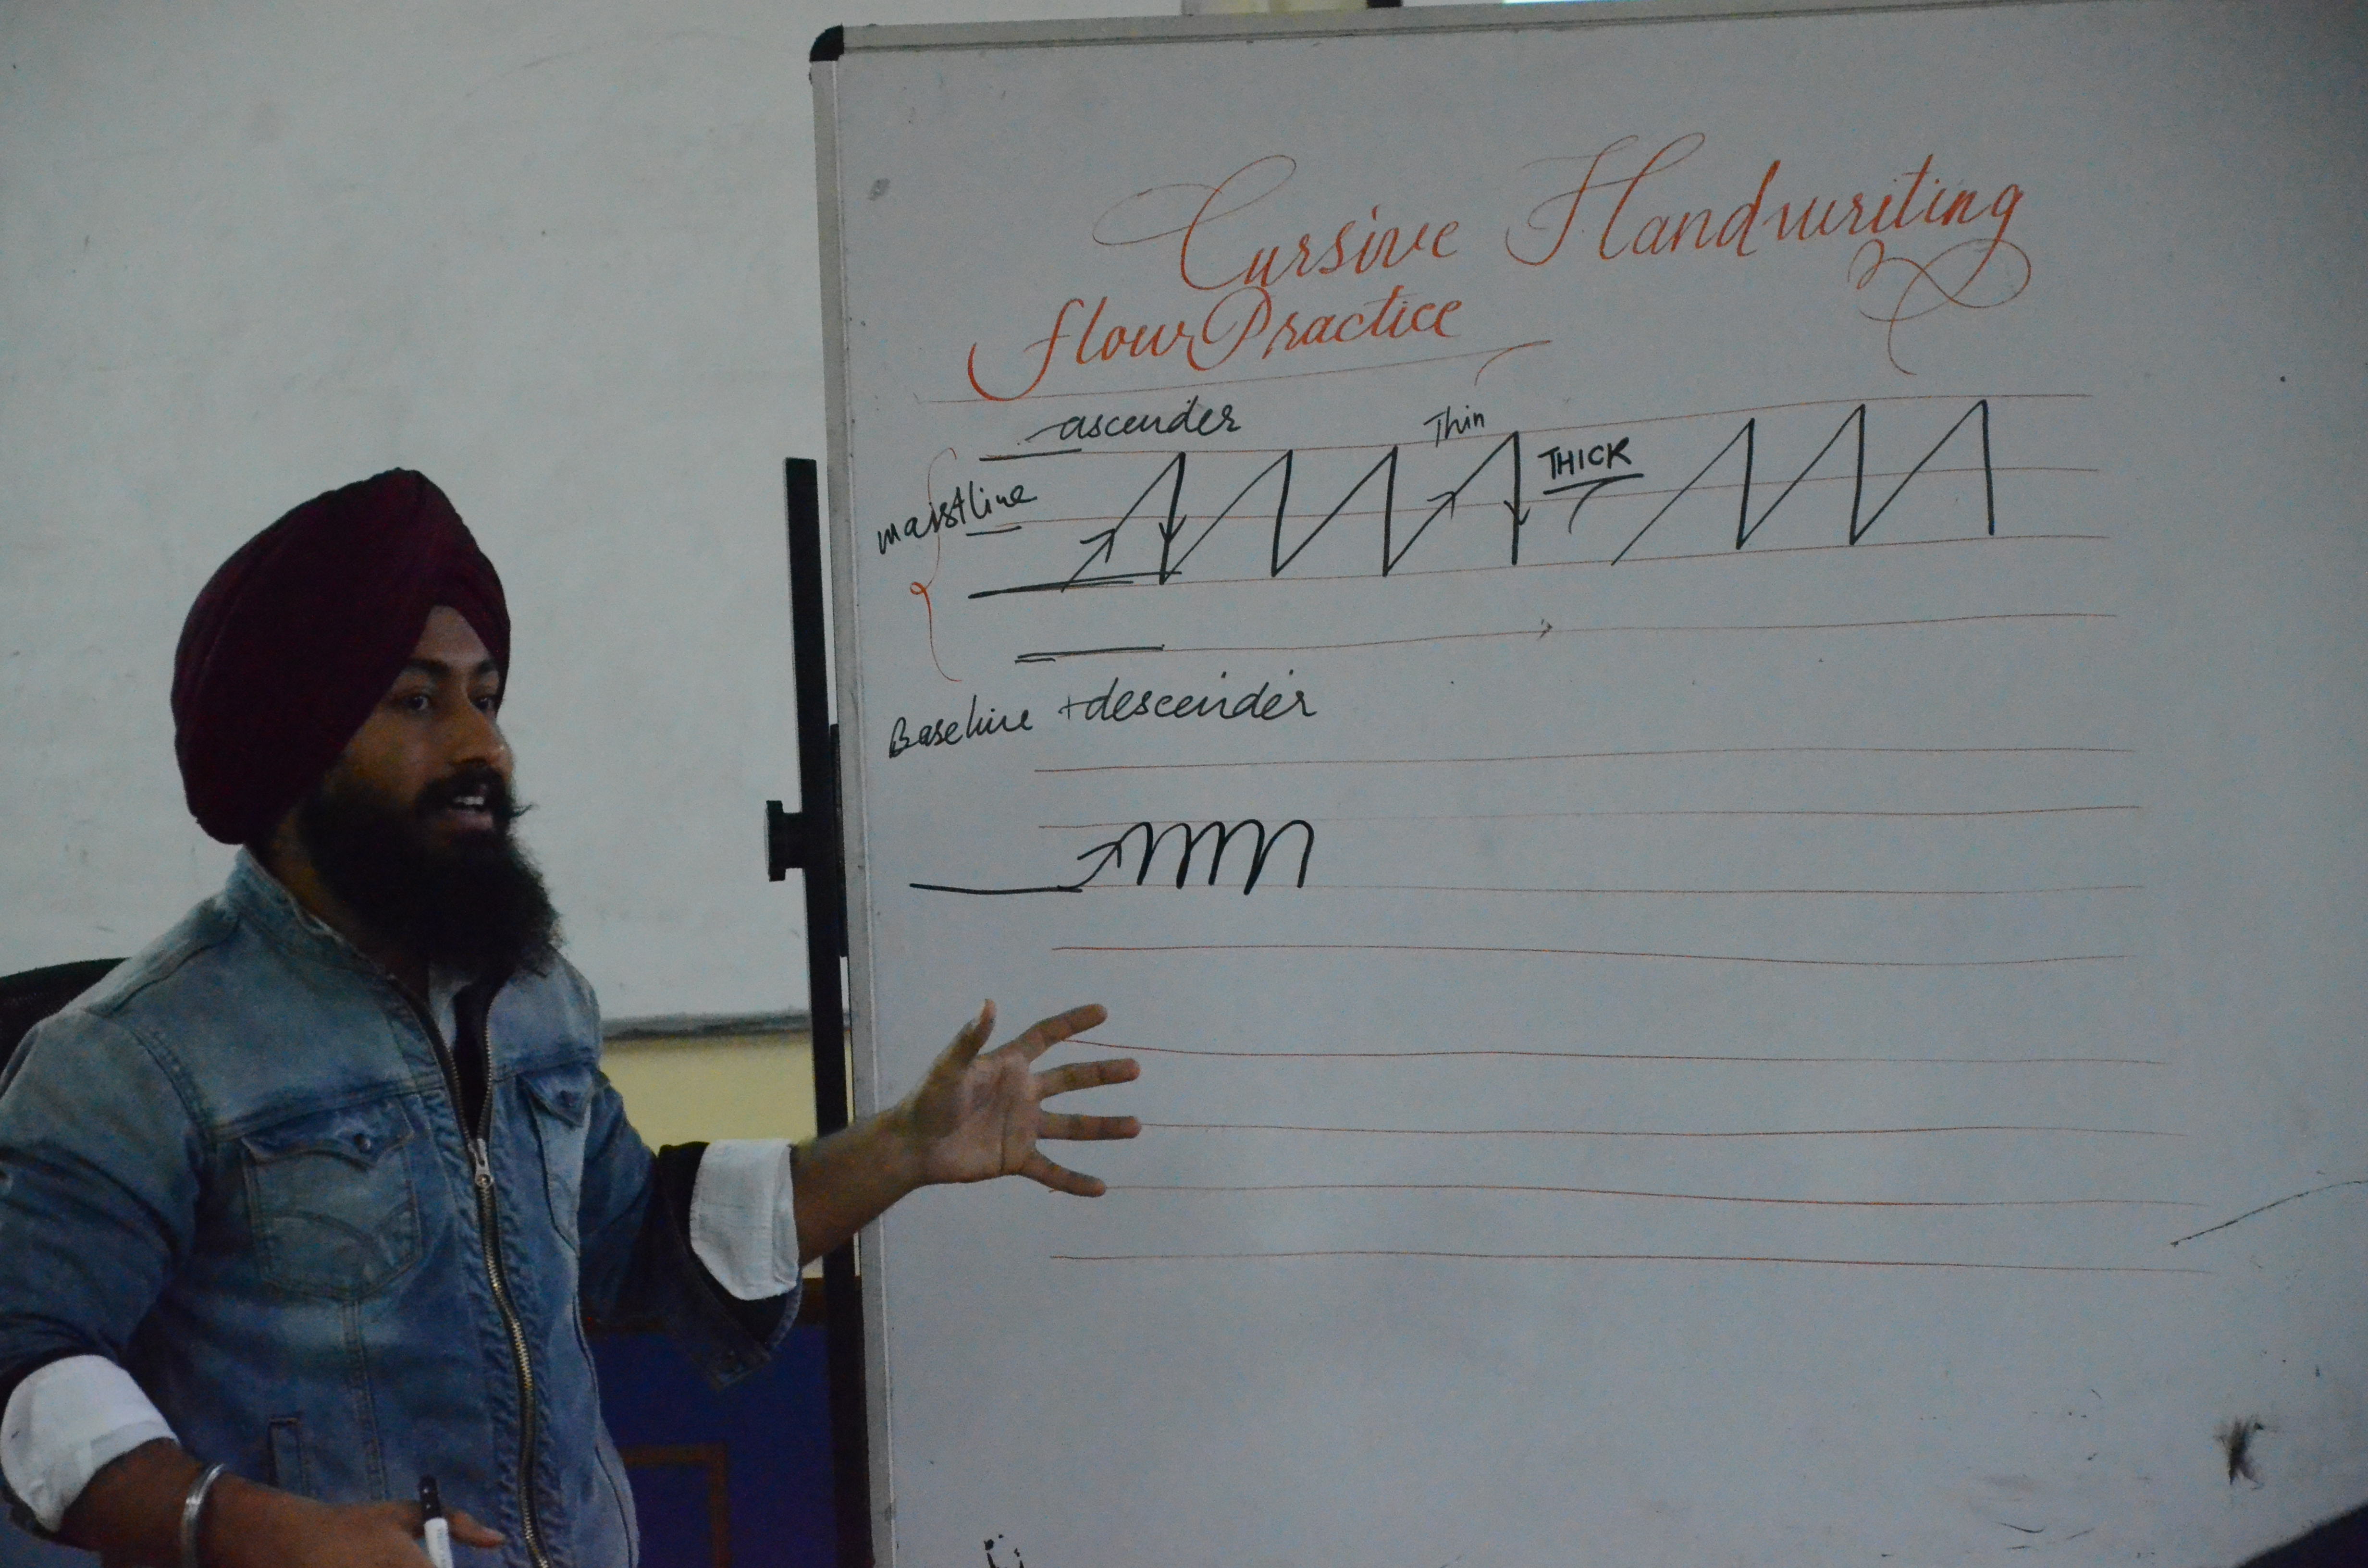 Cursive Handwriting
flow Practice
ascender
Thin
THICK
waistline
Baseline + descender